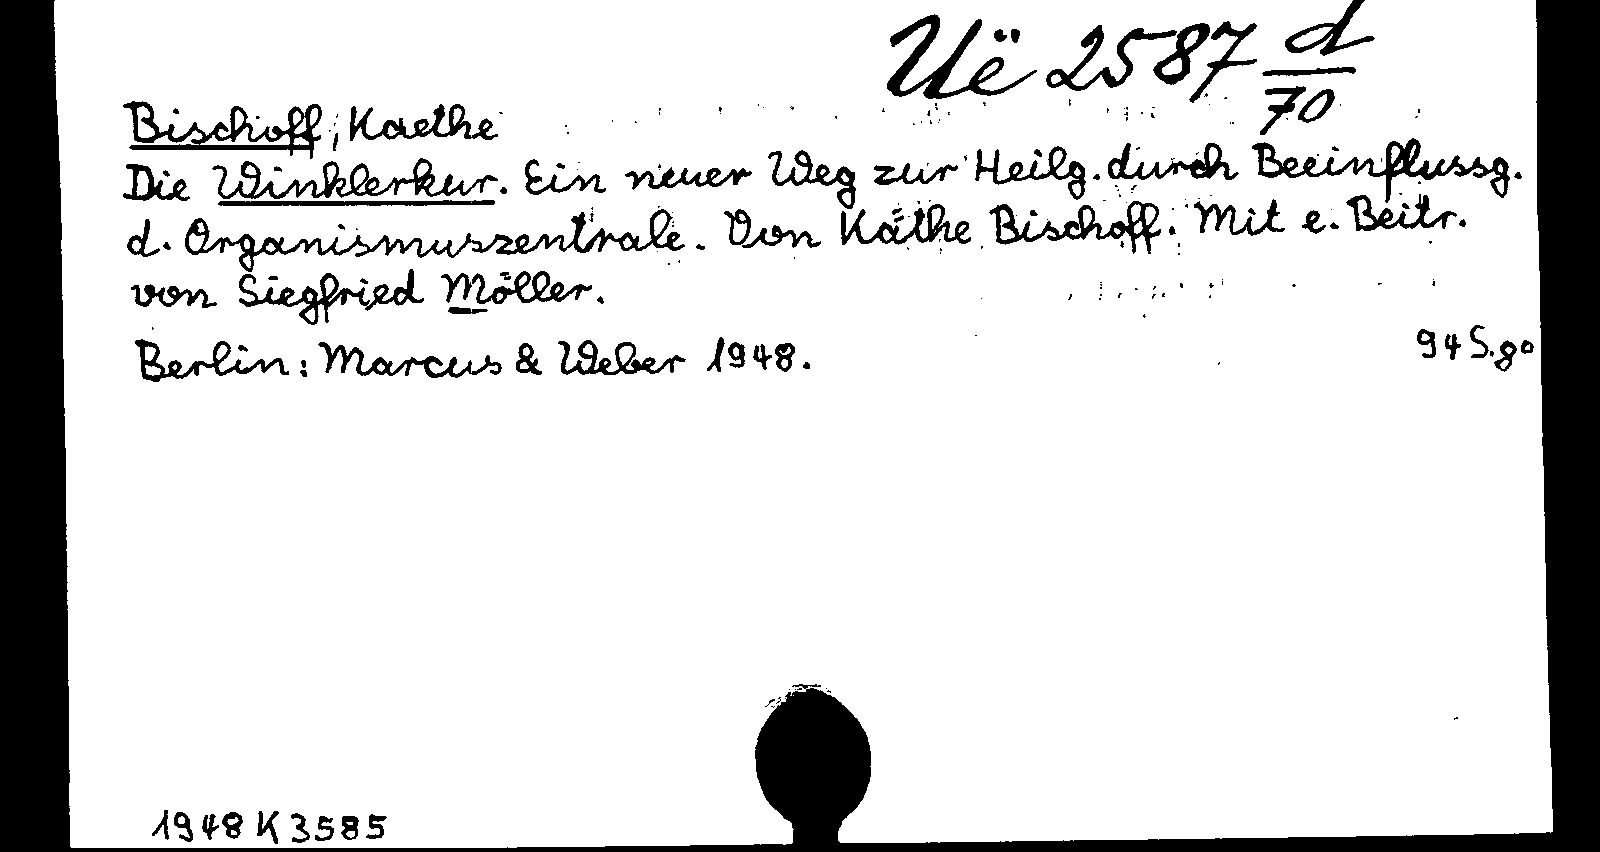 Uë 2587 d/70
Bischoff, Kaethe
Die Winklerkur. Ein neuer Weg zur Heilg. durch Beeinflussg.
d. Organismuszentrale. Von Käthe Bischoff. Mit e. Beitr.
von Siegfried Möller.
Berlin: Marcus & Weber 1948.
94 S. 8°
1948 K 3585